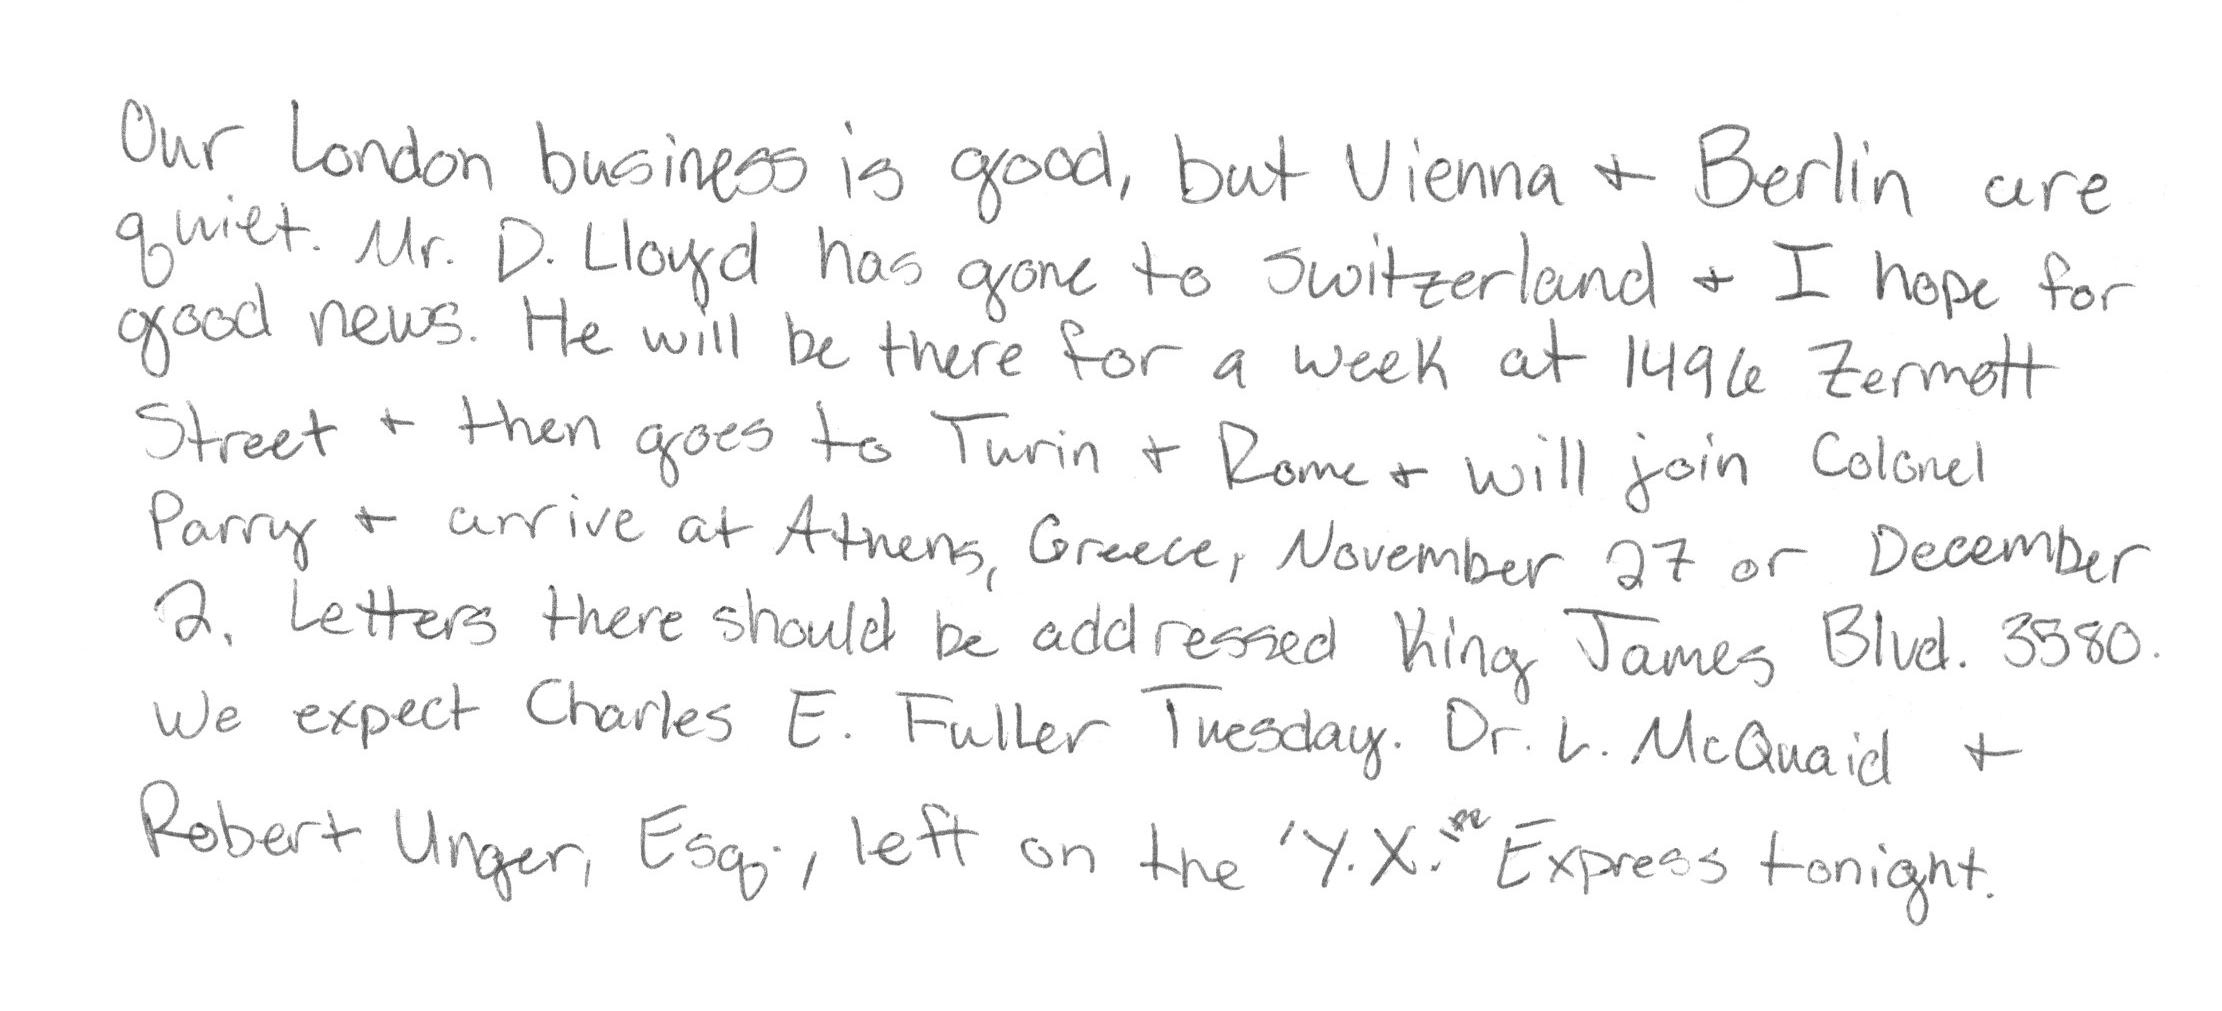 Our London business is good, but Vienna + Berlin are
quiet. Mr. D. Lloyd has gone to Switzerland + I hope for
good news. He will be there for a week at 1496 Zermott
Street + then goes to Turin + Rome + will join Colonel
Parry + arrive at Athens, Greece, November 27 or December
2. Letters there should be addressed King James Blvd. 3580.
We expect Charles E. Fuller Tuesday. Dr. L. McQuaid +
Robert Unger, Esq., left on the 'Y.X.' Express tonight.